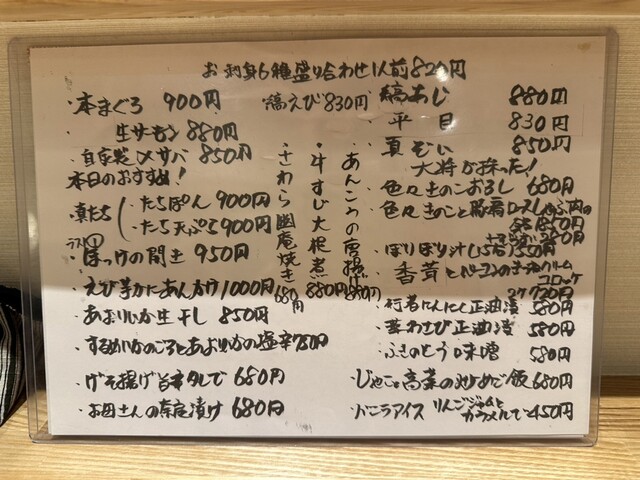 お刺身6種盛り合わせ1人前820円
・本まぐろ 900円
生サーモン 880円
・自家製〆サバ 850円
本日のおすすめ!
・真たち
たちぽん 900円
たち天ぷら 900円
ラスト①
・ほっけの開き 950円
・えび芋かにあんかけ 1000円
・あおりいか生干し 850円
・するめいかのごろとあおりいかの塩辛 750円
・げそ揚げ旨辛タレで 680円
・お母さんの奈良漬け 680円
・縞えび 830円
・さわら幽庵焼き 680円
・牛すじ大根煮 880円
・あんこうの唐揚げ 880円
・縞あじ 880円
・平目 830円
・真ぞい 850円
大将が採った!
・色々きのこおろし 680円
・色々きのこと豚肩ロースしゃぶ肉の
・ぼりぼり汁
・香茸とベーコンのチーズクリーム
コロッケ
720円
・行者にんにく正油漬 580円
・葉わさび正油漬 580円
・ふきのとう味噌 580円
・じゃこと高菜の炒めご飯 680円
・バニラアイス りんごジャムと
カラメルで 450円